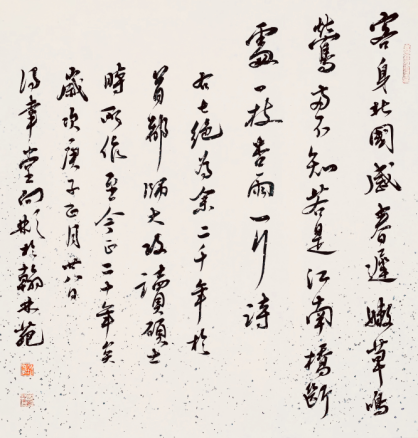 客身北國感春遲嫩草鳴
鶯两不知若是江南橋斷
處一枝杏雨一行詩
右七絕為余二千年於
首都師大攻讀碩士
時所作至今正二十年矣
歲次庚子正月廿八日
堂於翰林苑